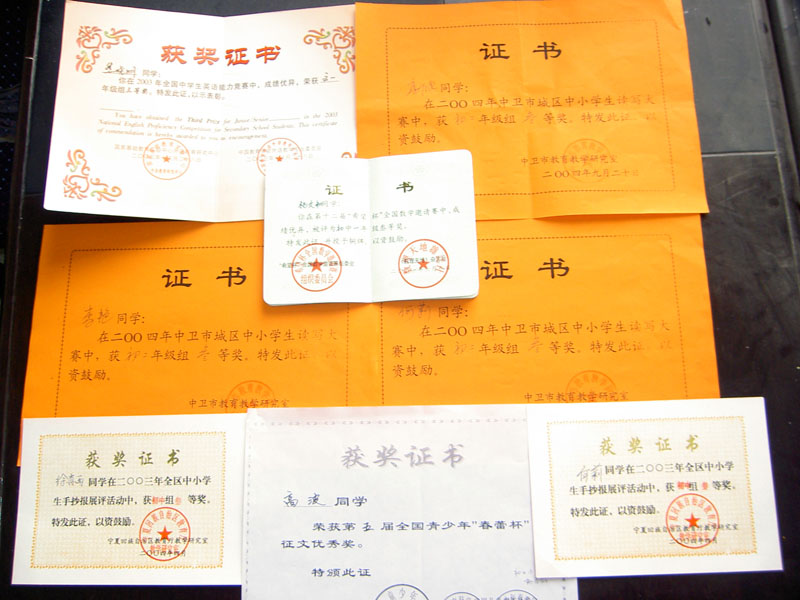 获奖证书
同学：
你在2003年全国中学生英语能力竞赛中，成绩优异，荣获
年级组三等奖，特发此证，以示表彰。
You have obtained the Third Prize for Junior/Senior in the 2003
National English Proficiency Competition for Secondary School Students. This certificate
of commendation is hereby awarded to you as encouragement.
证书
同学：
在二〇〇四年中卫市城区中小学生读写大
赛中，获初二年级组叁等奖。特发此证，以
资鼓励。
中卫市教育教学研究室
二〇〇四年九月二十日
证书
同学：
你在第十二届“希望杯”全国数学邀请赛中，成
绩优异，被评为初中一年级叁等奖。
特发此证，并授予铜牌，以资鼓励。
证书
袁艳同学：
在二〇〇四年中卫市城区中小学生读写大
赛中，获初二年级组叁等奖。特发此证，以
资鼓励。
中卫市教育教学研究室
证书
何莉同学：
在二〇〇四年中卫市城区中小学生读写大
赛中，获初二年级组叁等奖。特发此证，以
资鼓励。
中卫市教育教学研究室
获奖证书
同学在二〇〇三年全区中小学
生手抄报展评活动中，获初中组叁等奖。
特发此证、以资鼓励。
宁夏回族自治区教育厅教学研究室
二〇〇四年四月
获奖证书
高波同学
荣获第五届全国青少年“春蕾杯”
征文优秀奖。
特颁此证
获奖证书
何莉同学在二〇〇三年全区中小学
生手抄报展评活动中，获初中组叁等奖。
特发此证、以资鼓励。
宁夏回族自治区教育厅教学研究室
二〇〇四年四月